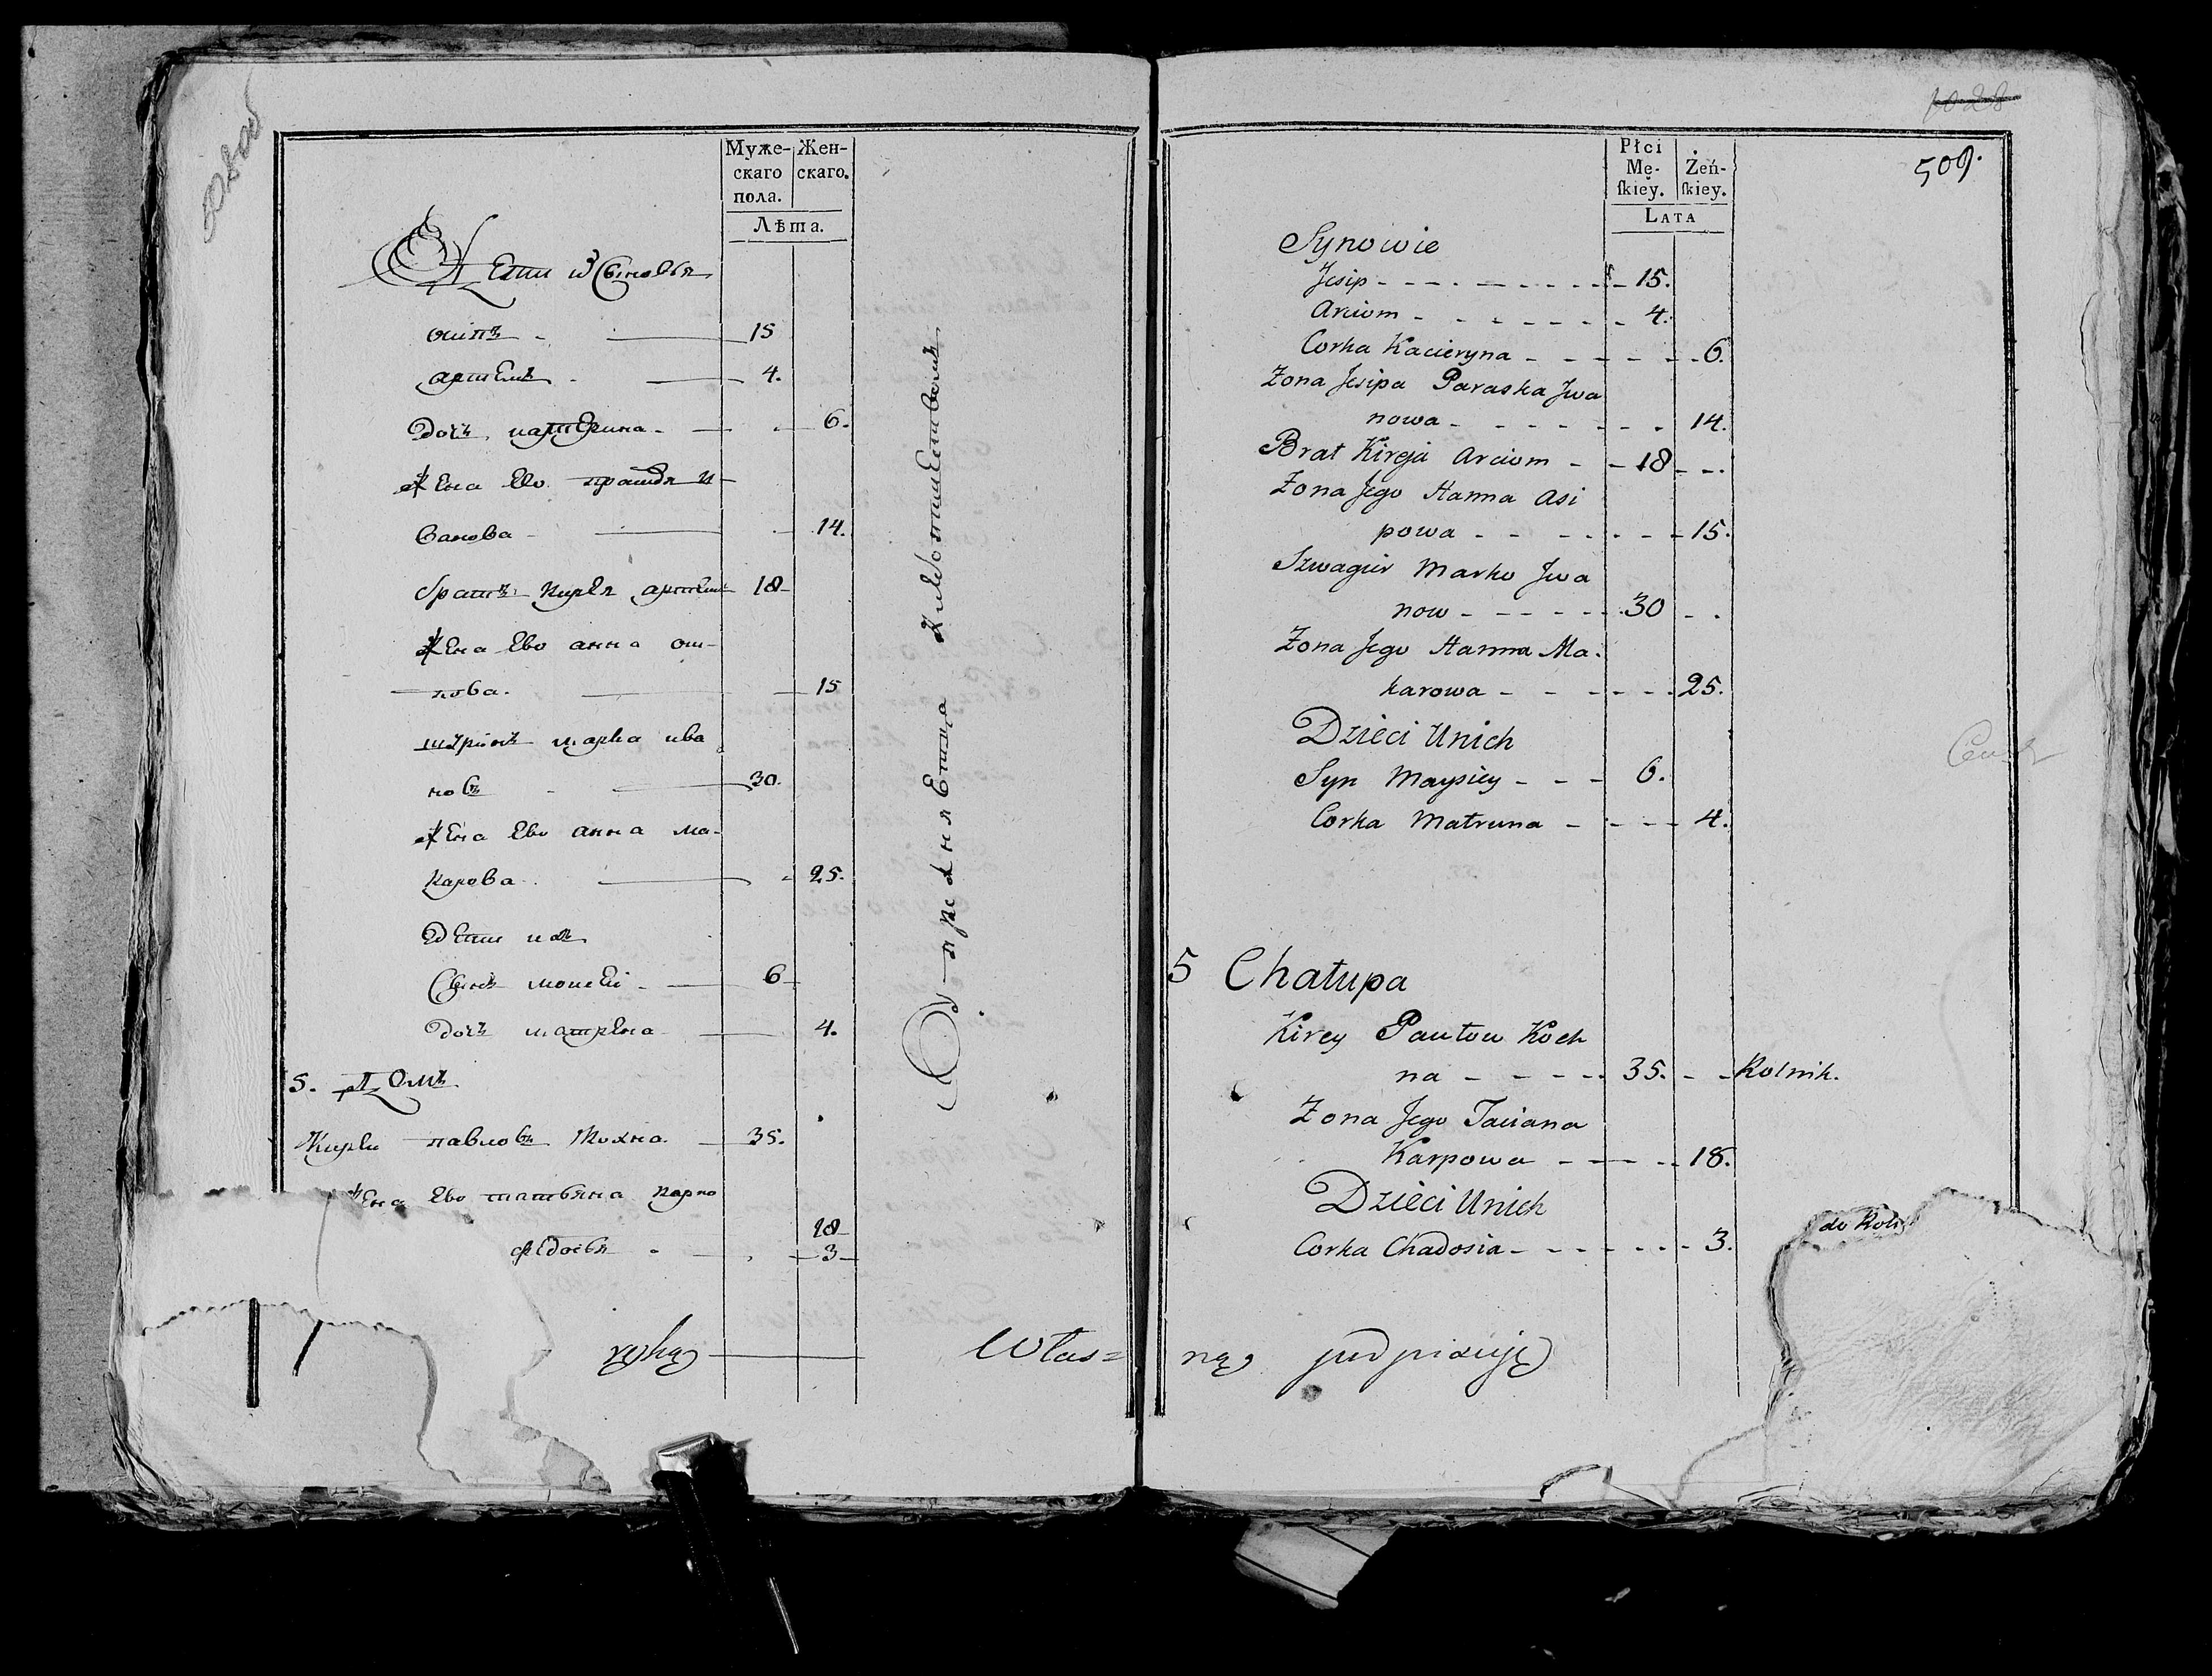 Муже-
скаго
пола.
Жен-
скаго.
Лѣта.
Дети Сыновья
осипъ 15
артемъ 4.
Дочь катерина 6.
Жена Ево и
ванова 14.
братъ кирея артемъ 18
Жена Ево анна оси
пова. 15
шуринъ марка ива
новъ 30.
Жена Ево анна ма-
карова 25.
Дети их
Сынъ мосей 6
Дочь матрена 4.
5. Домъ
Кирей павловъ Кохна 35.
Жена Ево татьяна карпо
18
федосья 3
упражняетца хлебопашествомъ
ręką
Włas=
Płci
Mę-
ſkiey.
Żeń-
ſkiey.
LATA
509.
Synowie
Jesip 15.
Arciom 4.
Corka Kacieryna 6.
Zona Jesipa Paraska Jwa
nowa 14.
Brat Kireja Arciom 18
Zona Jego Hanna Asi
powa 15.
Szwagier Marko Jwa
now 30
Zona Jego Hanna Ma.
karowa 25.
Dzieci Unich
Syn Maysiey 6.
Corka Matruna 4.
5 Chałupa
Kirey Pautow Koch
na 35. Rolnik.
Zona Jego Taciana
Karpowa 18.
Dzieci Unich
Corka Chadosia 3.
do Roli
ną podpisuję